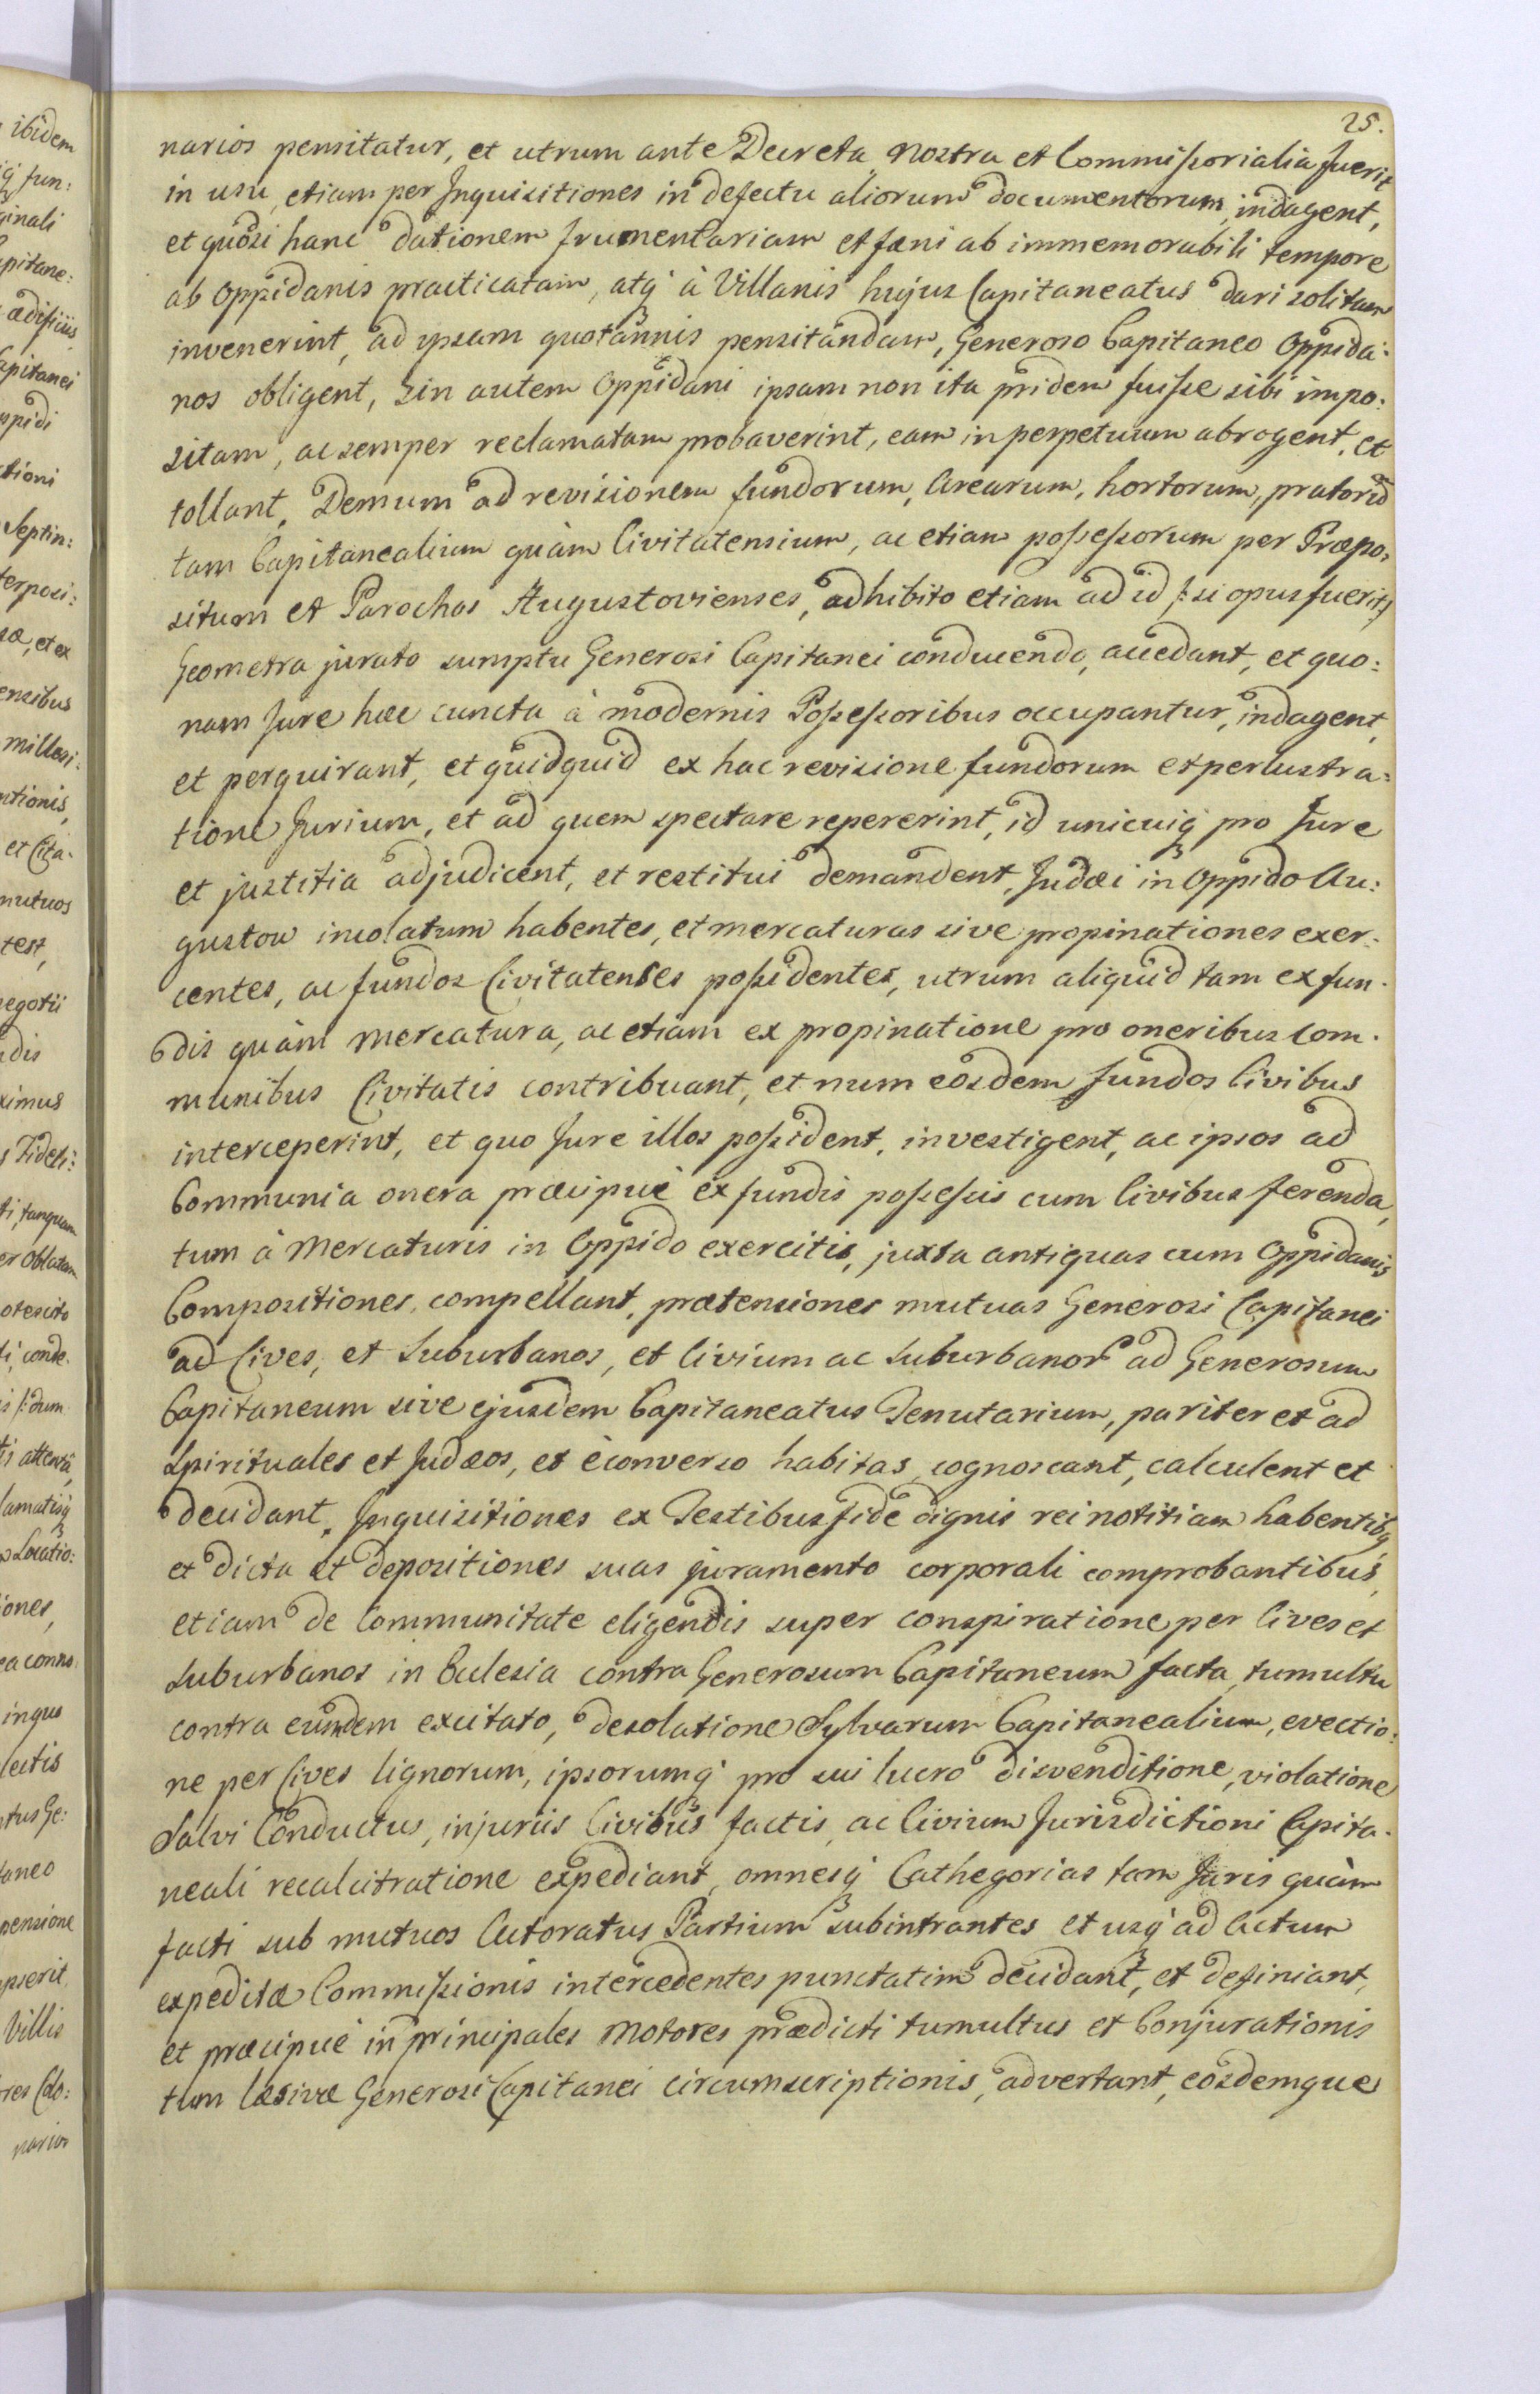 25.
narios pensitatur, et utrum ante Decreta nostra et Commissorialia fuerit
in usu, etiam per Inquisitiones in defectu aliorum documentorum, indagent,
et quòd si hanc dationem frumentariam et fæni ab immemorabili tempore
ab Oppidanis practicatam, atq; à Villanis hujus Capitaneatus dari solitam
invenerint, ad ipsam quotannis pensitandam, Generoso Capitaneo Oppida:
nos obligent, sin autem Oppidani ipsam non ita pridem fuisse sibi impo:
sitam, ac semper reclamatam probaverint, eam in perpetuum abrogent, et
tollant, Demum ad revisionem fundorum, Arearum, hortorum, pratorũ
tam Capitanealium quàm Civitatensium, ac etiam possessorum per Præpo:
situm et Parochos Augustovienses, adhibito etiam ad id /: si opus fuerit :/
Geometra jurato sumptu Generosi Capitanei conducendo, accedant, et quo:
nam Jure hæc cuncta à modernis Possessoribus occupantur, indagent,
et perquirant, et quidquid ex hac revisione fundorum et perlustra:
tione Jurium, et ad quem spectare repererint, id unicuiq; pro Jure
et justitia adjudicent, et restitui demandent, Judæi in Oppido Au:
gustow incolatum habentes, et mercaturas sive propinationes exer:
centes, ac fundos Civitatenses possidentes, utrum aliquid tam ex fun:
dis quàm Mercatura, ac etiam ex propinatione pro oneribus com:
munibus Civitatis contribuant, et num eosdem fundos Civibus
interceperint, et quo Jure illos possident, investigent, ac ipsos ad
Communia onera præcipuè ex fundis possessis cum Civibus ferenda,
tum à Mercaturis in Oppido exercitis, juxta antiquas cum Oppidanis
Compositiones, compellant, prætensiones mutuas Generosi Capitanei
ad Cives, et Suburbanos, et Civium ac Suburbanor̃ ad Generosum
Capitaneum sive ejusdem Capitaneatus Tenutarium, pariter et ad
Spirituales et Judæos, et èconverso habitas, cognoscant, calculent et
decidant, Inquisitiones ex Testibus fide dignis rei notitiam habentibq
et dicta et depositiones suas juramento corporali comprobantibus,
etiam de Communitate eligendis super conspiratione per Cives et
Suburbanos in Ecclesia contra Generosum Capitaneum facta, tumultu
contra eumdem excitato, desolatione Sylvarum Capitanealium, evectio:
ne per Cives lignorum, ipsorumq; pro sui lucro disvenditione, violatione
Salvi Conductus, injuriis Civibus factis, ac Civium Jurisdictioni Capita:
neali recalcitratione expediant, omnesq; Cathegorias tam Juris quàm
facti sub mutuos Actoratus Partium subintrantes et usq; ad Actum
expeditæ Commissionis intercedentes punctatim decidant, et definiant,
et præcipuè in principales Motores prædicti tumultus et Conjurationis
tum læsivæ Generosi Capitanei circumscriptionis, advertant, eosdemque